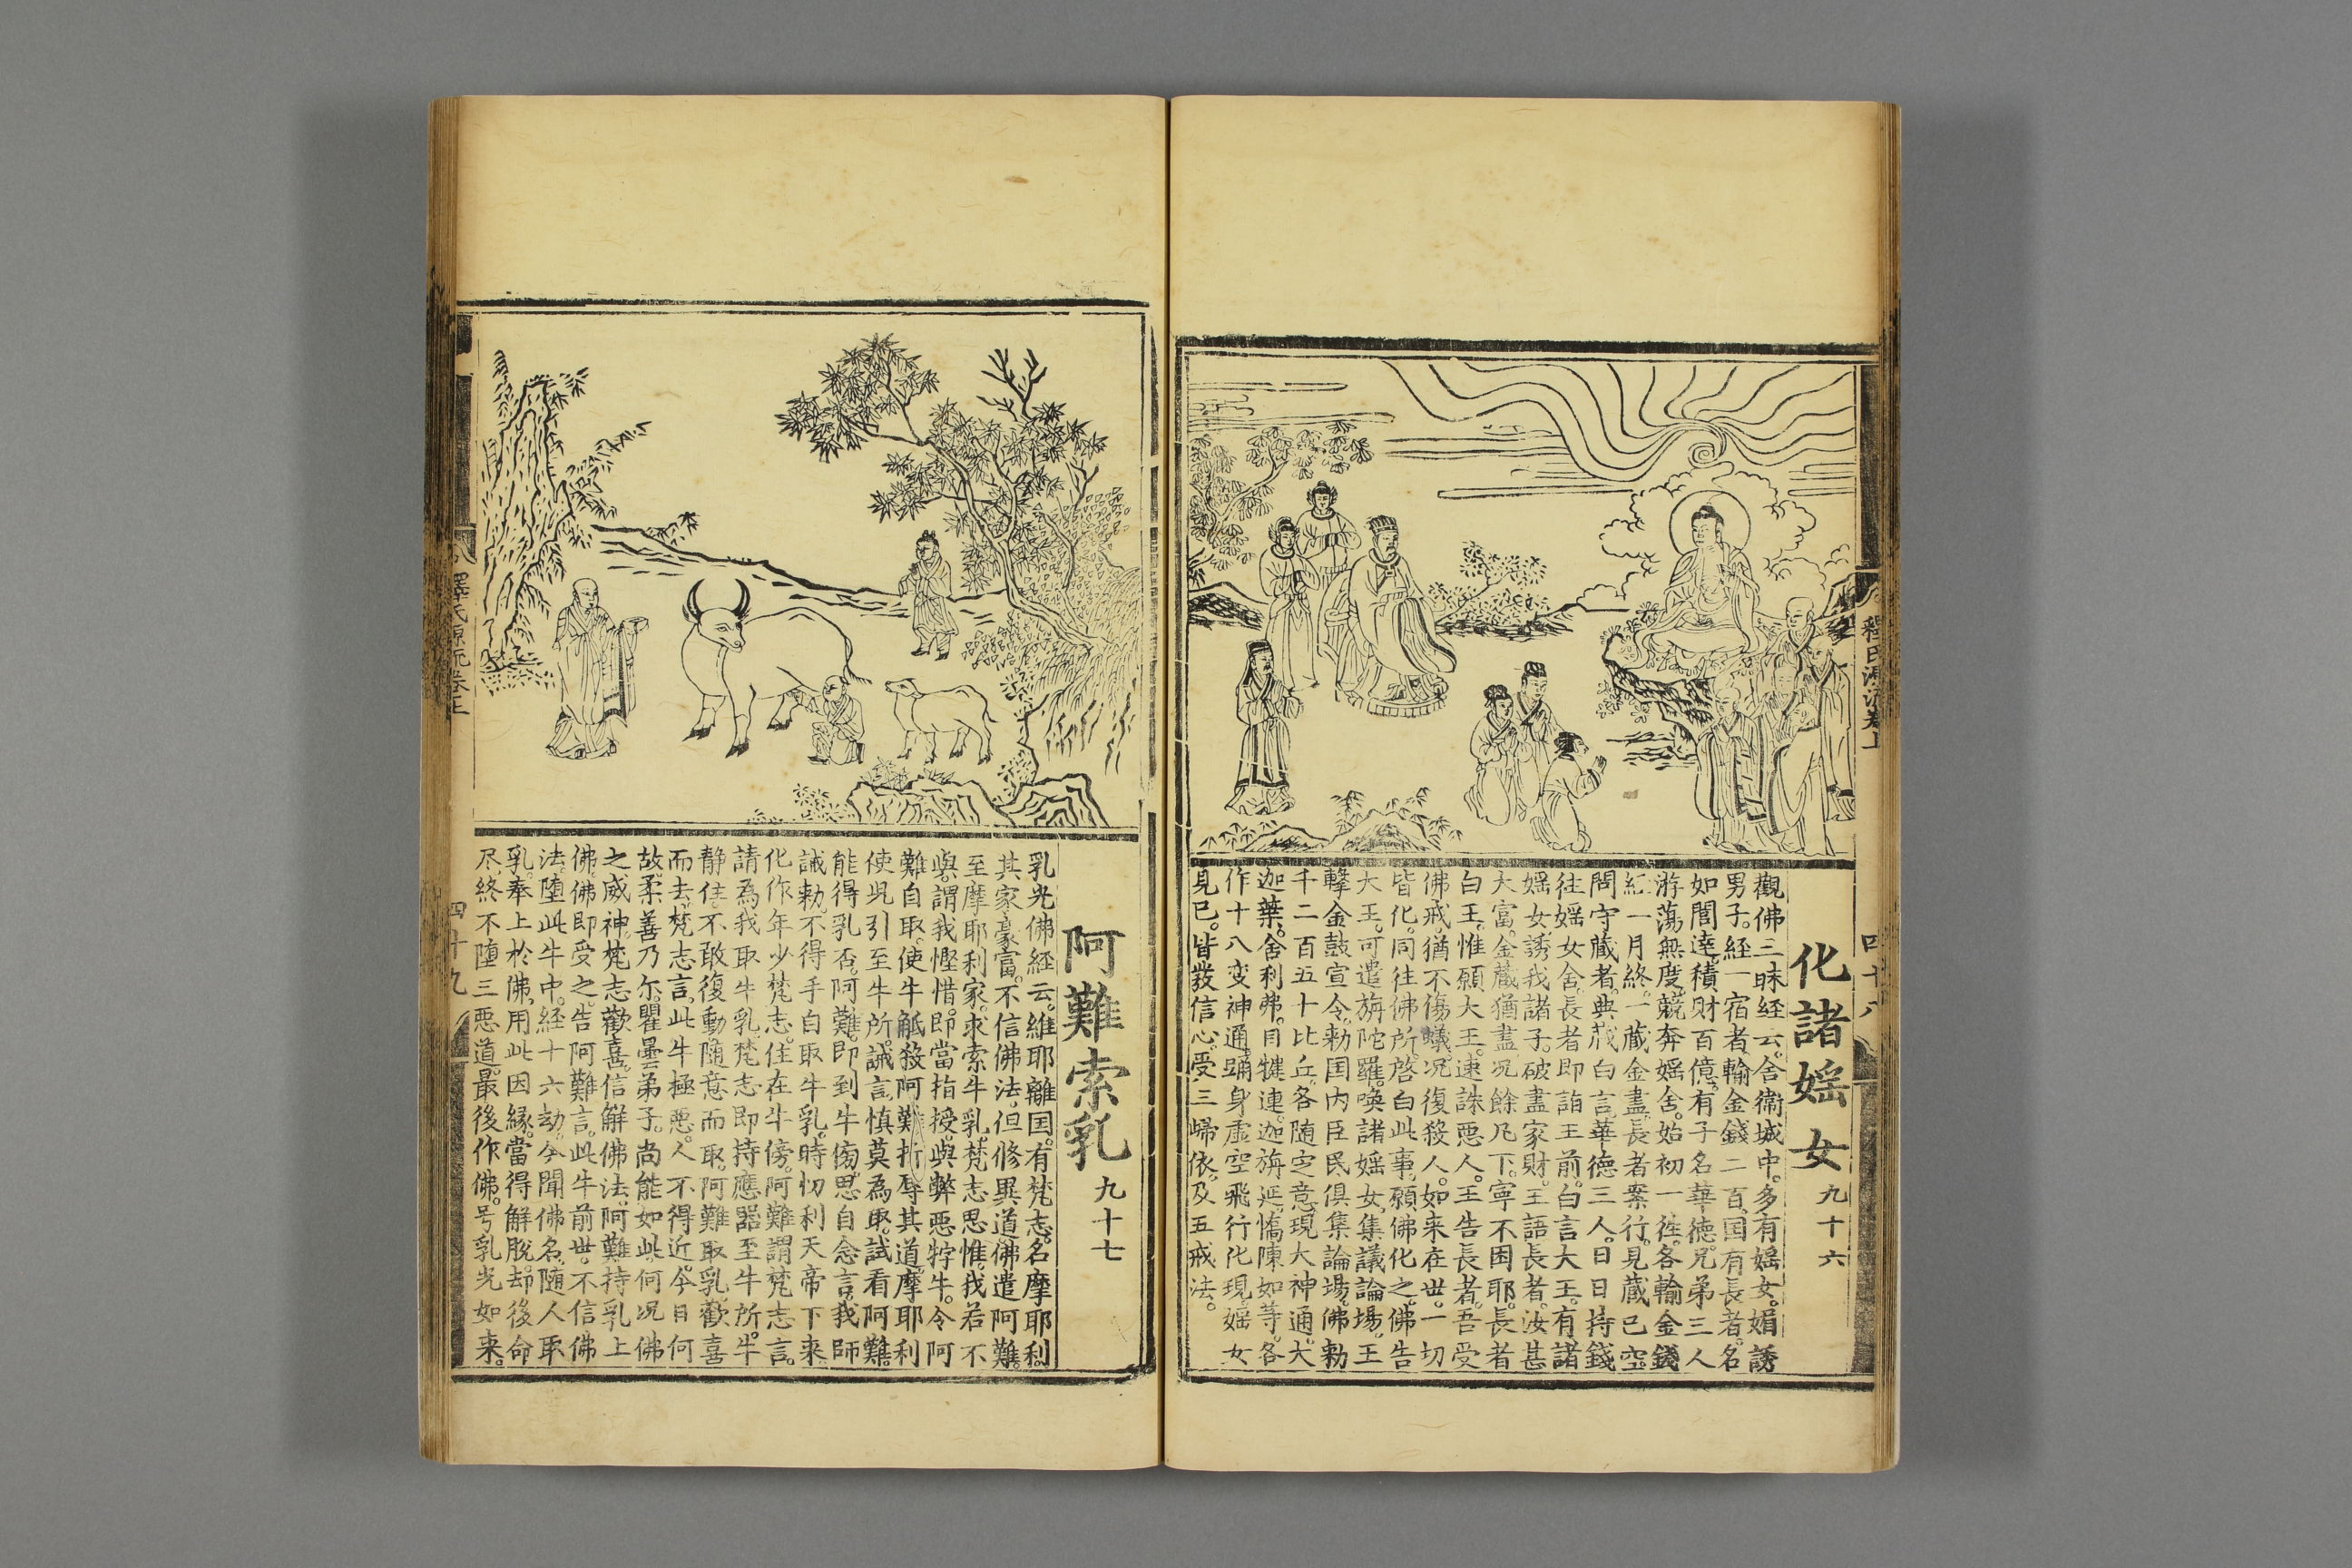 釋氏源流卷上
四十八
化諸婬女 九十六
觀佛三昧経云。舍衛城中。多有婬女。媚誘
男子。経一宿者。輸金錢二百。国有長者。名
如閭達。積财百億。有子名華德。兄弟三人
游蕩無度。競奔婬舍。始初一徃。各輸金錢
紅一月終。一藏金盡。長者案行。見藏已空。
問守藏者。典藏白言。華德三人。日日持錢
徃婬女舍。長者即詣王前。白言大王。有諸
婬女誘我諸子。破盡家财。王語長者。汝甚
大富。金藏猶盡。况餘凡下。寧不困耶。長者
白王。惟願大王。速誅惡人。王告長者。吾受
佛戒。猶不傷蟻。况復殺人。如来在世。一切
皆化。同往佛所。啓白此事。願佛化之。佛告
大王。可遣旃陀羅。喚諸婬女。集議論場。王
擊金鼓宣令。勅国内臣民。俱集論場。佛勅
千二百五十比丘。各随定意。現大神通。大
迦葉。舍利弗。目犍連。迦旃延。憍陳如等。各
作十八变。神通踊身虚空。飛行化現。婬女
見已。皆發信心。受三歸依。及五戒法。
阿難索乳 九十七
乳光佛経云。維耶離国。有梵志。名摩耶利。
其家豪富。不信佛法。但修異道。佛遣阿難。
至摩耶利家。求索牛乳。梵志思惟。我若不
與。謂我慳惜。即當指授。與弊惡牸牛。令阿
難自取。使牛觝殺阿難。折辱其道。摩耶利
使児引至牛所。誡言。慎莫為取。試看阿難。
能得乳否。阿難。即到牛傍。思自念言。我師
誡勅。不得手自取牛乳。時忉利天帝下来
化作年少梵志。住在牛傍。阿難謂梵志言。
請為我取牛乳。梵志即持應器至牛所。牛
静住。不敢復動。随意而取。阿難取乳。歡喜
而去。梵志言。此牛極惡。人不得近。今日何
故。柔善乃尔。瞿曇弟子。尚能如此。何况佛
之威神。梵志歡喜。信解佛法。阿難持乳上
佛。佛即受之。告阿難言。此牛前世。不信佛
法。堕此牛中。経十六劫。今聞佛名。随人取
乳。奉上於佛。用此因縁。當得解脫。却後命
尽。終不堕三惡道。最後作佛。号乳光如来。
釋氏源流卷上
四十九